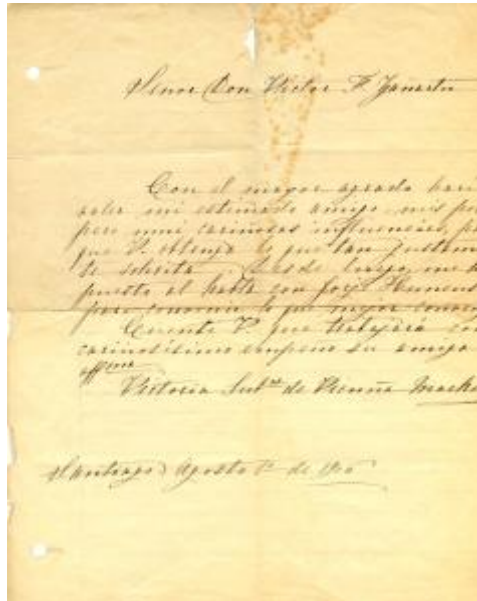 Señor Don Victor F. Zañartu
Con el mayor agrado hari
valer mi estimado amigo, mis po
pero mui cariñosas influencias, pa
que V. obtenga lo que tan justam
te solicita. Desde luego me
puesto al habla con Jorje Huneeus
para convenir lo que mejor conven
Cuente V. que trabajará con
cariñosísimo empeño su amiga
affma
Victoria Sub.ux de Vicuña Macke
Santiago Agosto 1º de